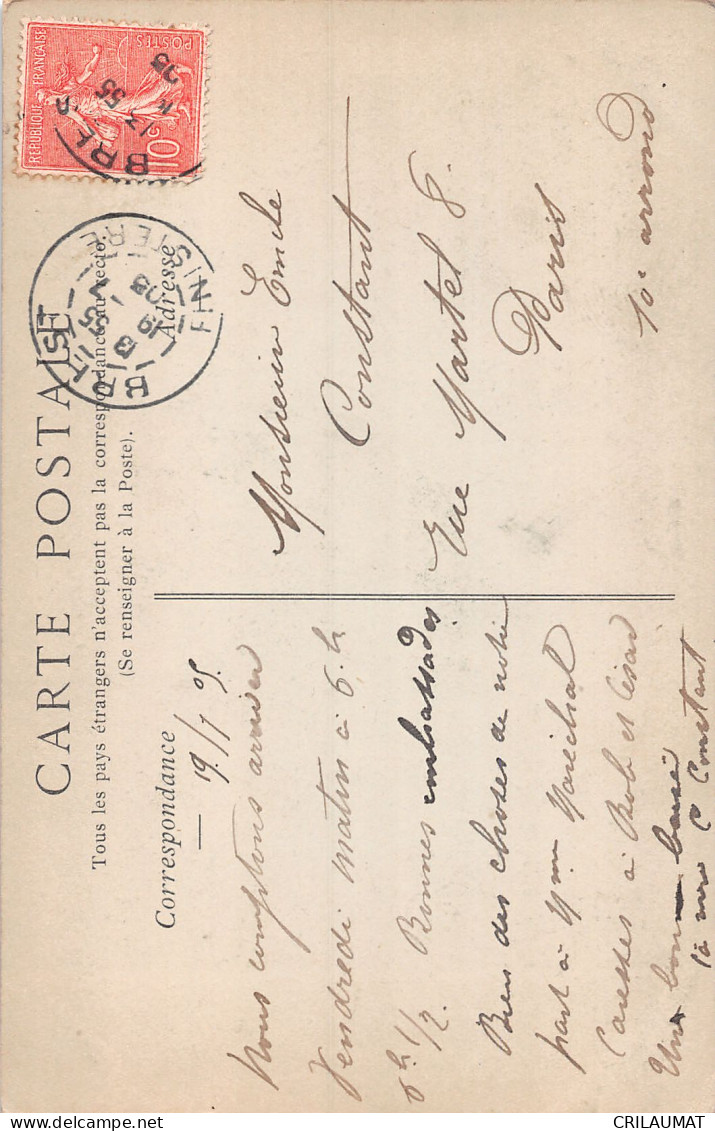 CARTE POSTALE
Tous les pays étrangers n'acceptent pas la correspondance au recto.
(Se renseigner à la Poste).
Correspondance
19/7 05.
Nous comptons arriver
Vendredi matin à 6.h
6h 1/2. Bonnes embrassades
Bien des choses de notre
part à Mme Maréchal
Caresses à Bob et César
Une bon baisé
C Constant
Adresse
Monsieur Emile
Constant
Rue Martel 8.
Paris
10e arrond
REPUBLIQUE FRANÇAISE
POSTES
10c
BREST
13 55
05
BREST
FINISTERE
13 55
19
05
CRILAUMAT